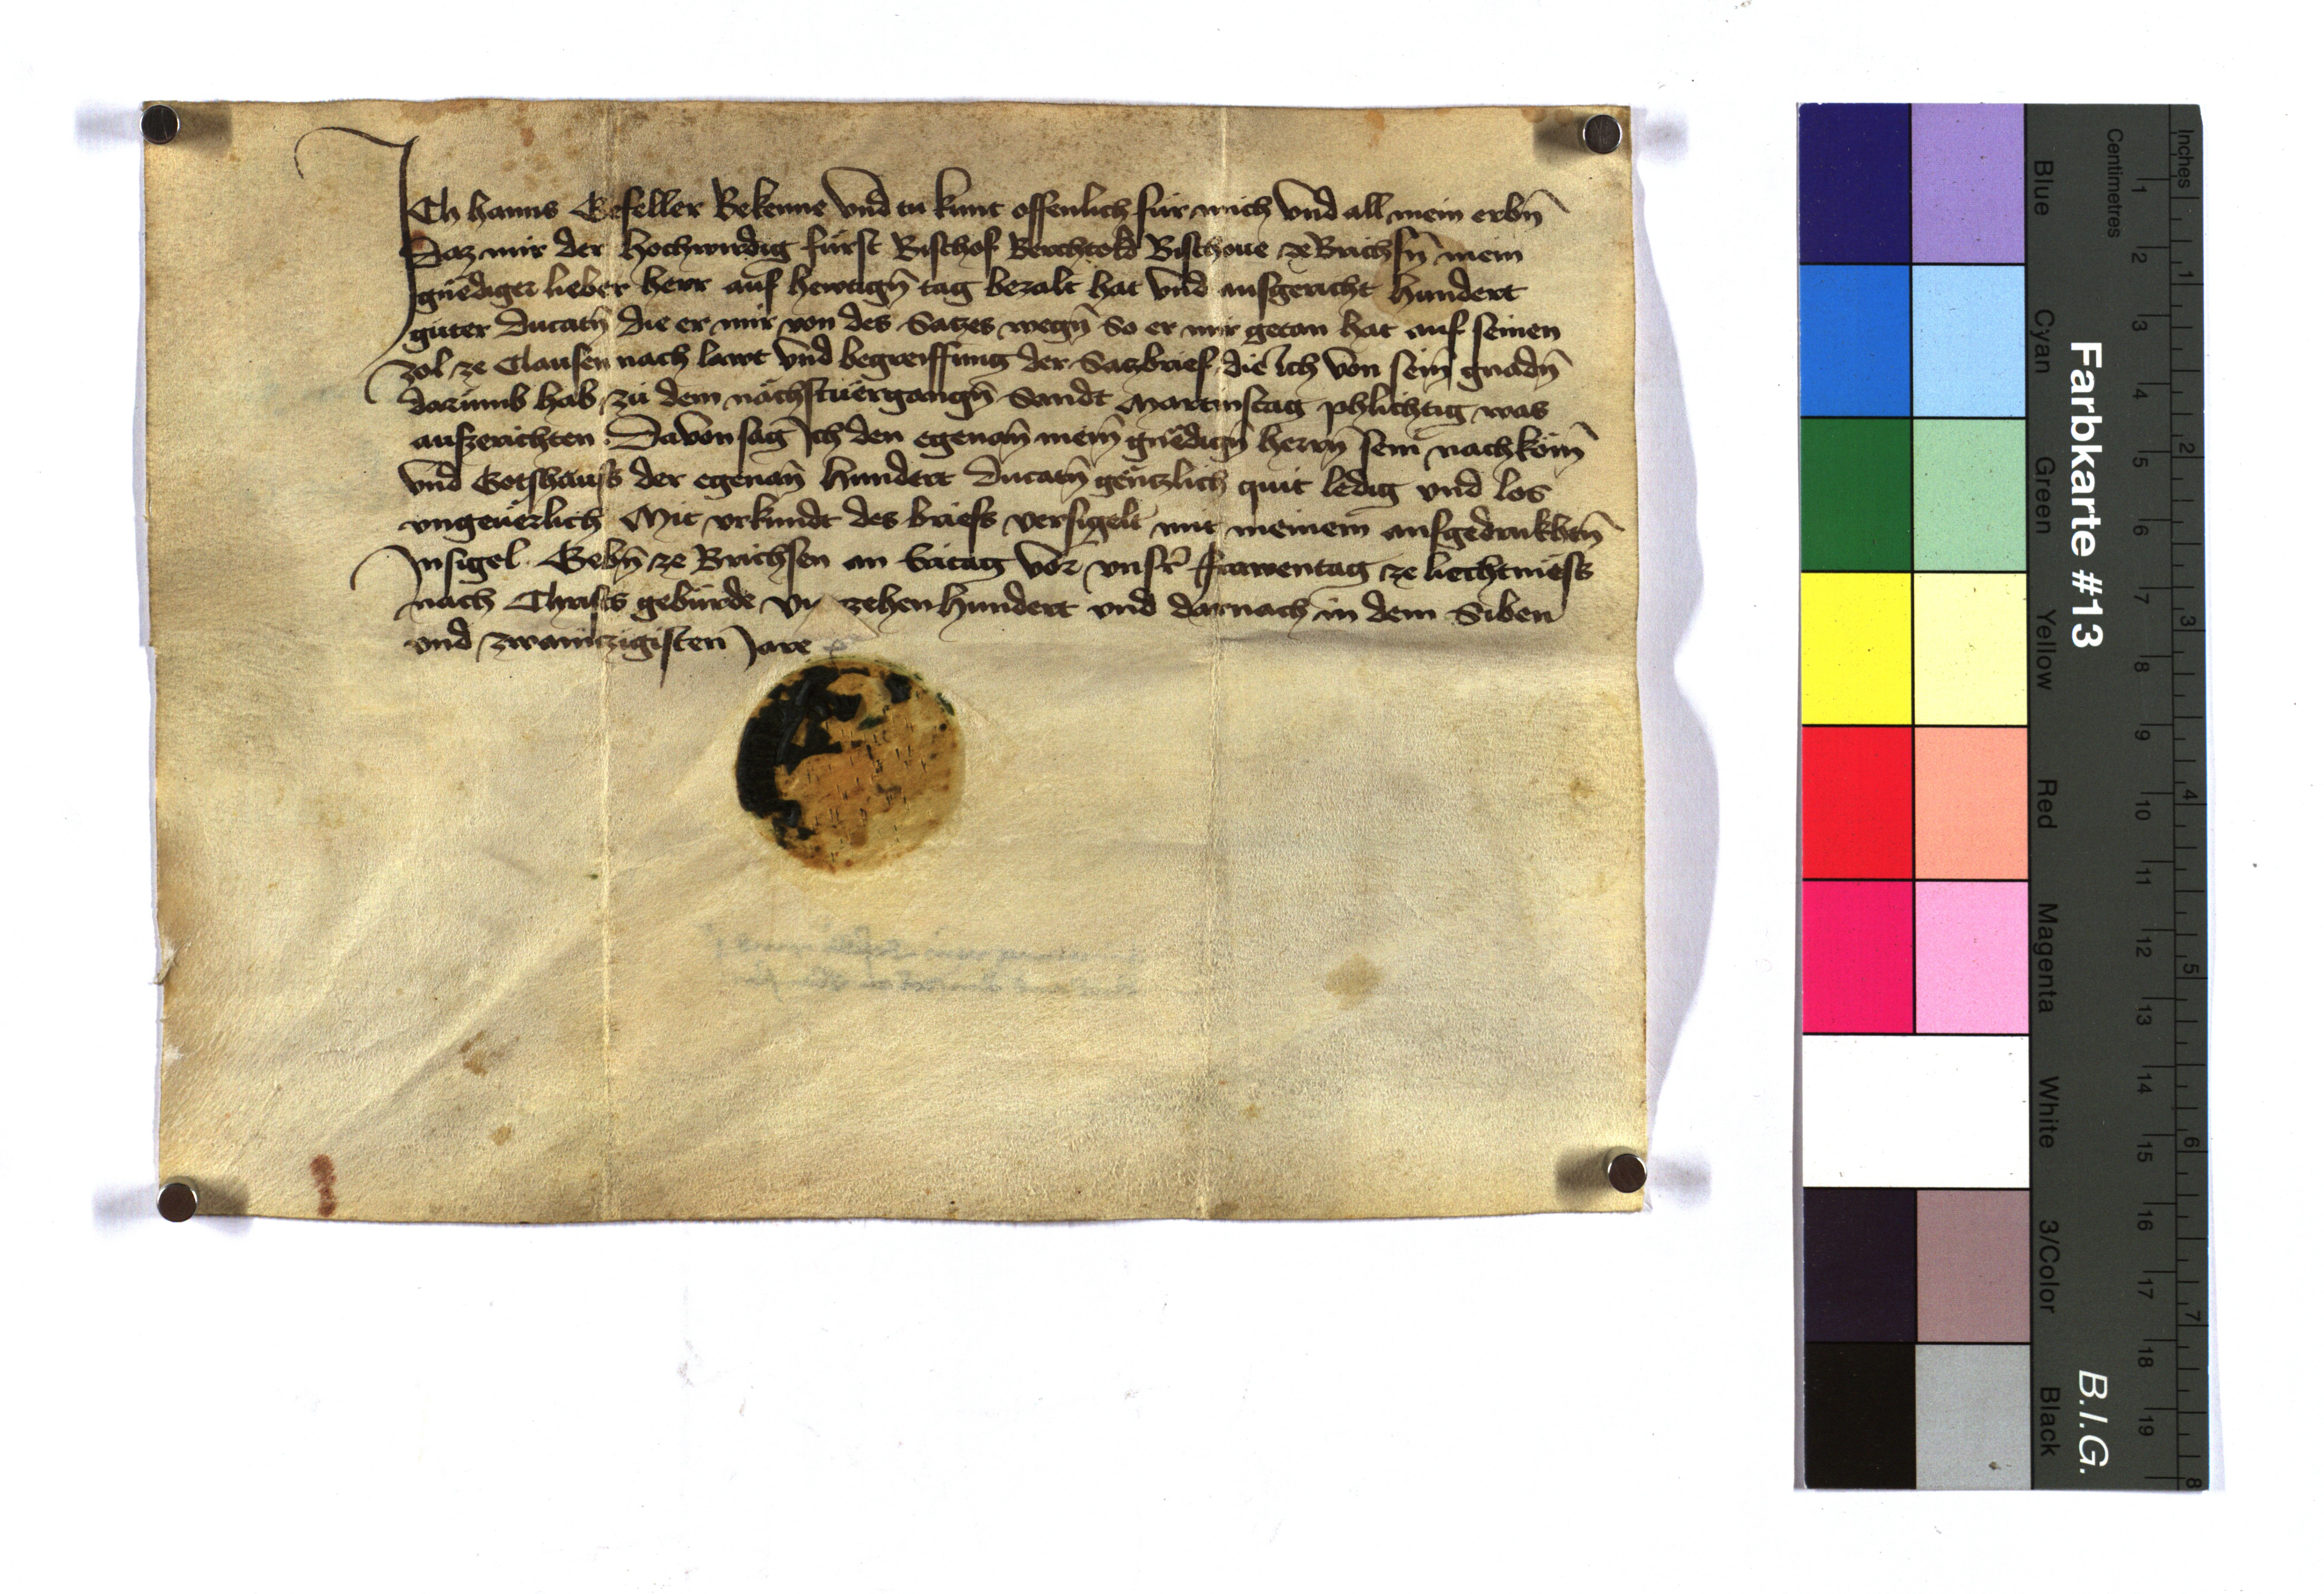 Ich hanns Gefeller Bekenne vnd tu kunt offenlich fur mich vnd all mein erbn̄
Daz mir der hochwirdig fürst Bischof Berchtold Bischoue ze Brichsn̄ mein
gnediger lieber herr auf hewtign̄ tag bezalt hat vnd ausgericht hundert
guter Ducatn̄ die er mir von des Satzes wegn̄ So er mir getan hat auf seinen
zol ze Clausen nach lawt vnd begreiffung der Satzbrief die Ich von sein̄ gnadn̄
darumb hab zu dem nächstuergangn̄ Sandt Martinstag phlichtig was
auszerichten Dauon sag Ich den egenan̄ mein̄ gnedign̄ herrn̄ sein nachkom̄
vnd Gotshauss der egenan̄ hundert Ducatn̄ gentzlich quit ledig vnd los
vngeuerlich Mit vrkundt des briefs versigelt mit meinem aufgedrukhtn̄
Insigel Gebn̄ ze Brichsen an vor vnsr̄ frawentag ze liechtmess
nach Christs geburde zehenhundert vnd darnach in dem Siben
vnd zwaintzigisten Jare
Farbkarte #13
B.I.G.
Inches
Centimetres
1 2 3 4 5 6 7 8 9 10 11 12 13 14 15 16 17 18 19
1 2 3 4 5 6 7 8
Blue
Cyan
Green
Yellow
Red
Magenta
White
3/Color
Black